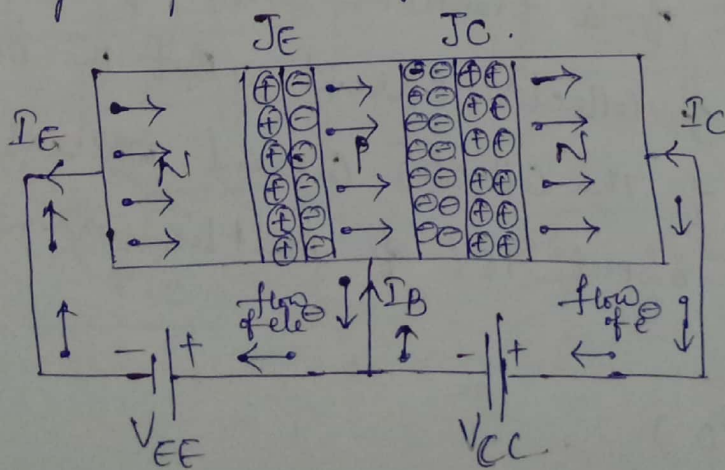 JE JC.
IE N P N IC
flow of ele⊖ IB flow of e⊖
- + - +
VEE VCC